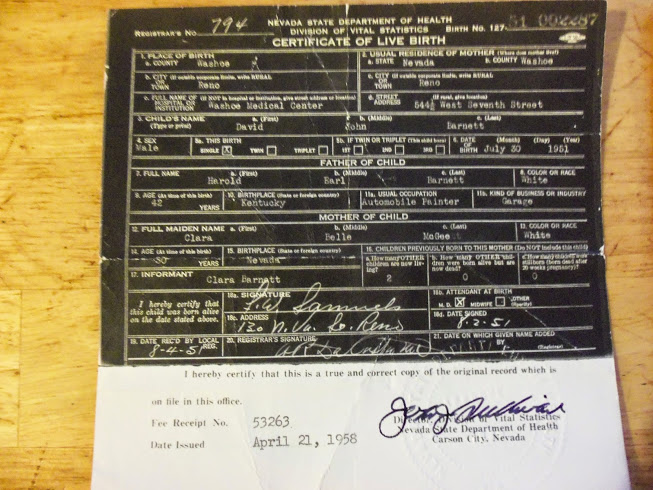 NEVADA STATE DEPARTMENT OF HEALTH
REGISTRAR'S NO. 794 DIVISION OF VITAL STATISTICS BIRTH NO. 127- 51 002287
CERTIFICATE OF LIVE BIRTH
1. PLACE OF BIRTH 2. USUAL RESIDENCE OF MOTHER (Where does mother live?)
a. COUNTY Washoe a. STATE Nevada b. COUNTY Washoe
b. CITY (If outside corporate limits, write RURAL c. CITY (If outside corporate limits, write RURAL
OR TOWN Reno OR TOWN Reno
c. FULL NAME OF HOSPITAL OR INSTITUTION (If NOT in hospital or institution, give street address or location) d. STREET ADDRESS (If rural, give location)
Washoe Medical Center 544½ West Seventh Street
3. CHILD'S NAME a. (First) b. (Middle) c. (Last)
(Type or print) David John Barnett
4. SEX 5a. THIS BIRTH 5b. IF TWIN OR TRIPLET (This child born) 6. DATE OF BIRTH (Month) (Day) (Year)
Male SINGLE X TWIN TRIPLET 1ST 2ND 3RD July 30 1951
FATHER OF CHILD
7. FULL NAME a. (First) b. (Middle) c. (Last) 8. COLOR OR RACE
Harold Earl Barnett White
9. AGE (At time of this birth) 10. BIRTHPLACE (State or foreign country) 11a. USUAL OCCUPATION 11b. KIND OF BUSINESS OR INDUSTRY
42 YEARS Kentucky Automobile Painter Garage
MOTHER OF CHILD
12. FULL MAIDEN NAME a. (First) b. (Middle) c. (Last) 13. COLOR OR RACE
Clara Belle McGee White
14. AGE (At time of this birth) 15. BIRTHPLACE (State or foreign country) 16. CHILDREN PREVIOUSLY BORN TO THIS MOTHER (Do NOT include this child)
30 YEARS Nevada a. How many OTHER children are now living? b. How many OTHER children were born alive but are now dead? c. How many children were stillborn (born dead after 20 weeks pregnancy)?
17. INFORMANT Clara Barnett 2 0 0
I hereby certify that this child was born alive on the date stated above.
18a. SIGNATURE Samuels 18b. ATTENDANT AT BIRTH
M. D. X MIDWIFE OTHER (Specify)
18c. ADDRESS 130 N. Va. St. Reno 18d. DATE SIGNED 8-2-51
19. DATE REC'D BY LOCAL REG. 8-4-51 20. REGISTRAR'S SIGNATURE 21. DATE ON WHICH GIVEN NAME ADDED
BY (Registrar)
I hereby certify that this is a true and correct copy of the original record which is
on file in this office.
Fee Receipt No. 53263
Director, Division of Vital Statistics
Nevada State Department of Health
Date Issued April 21, 1958 Carson City, Nevada